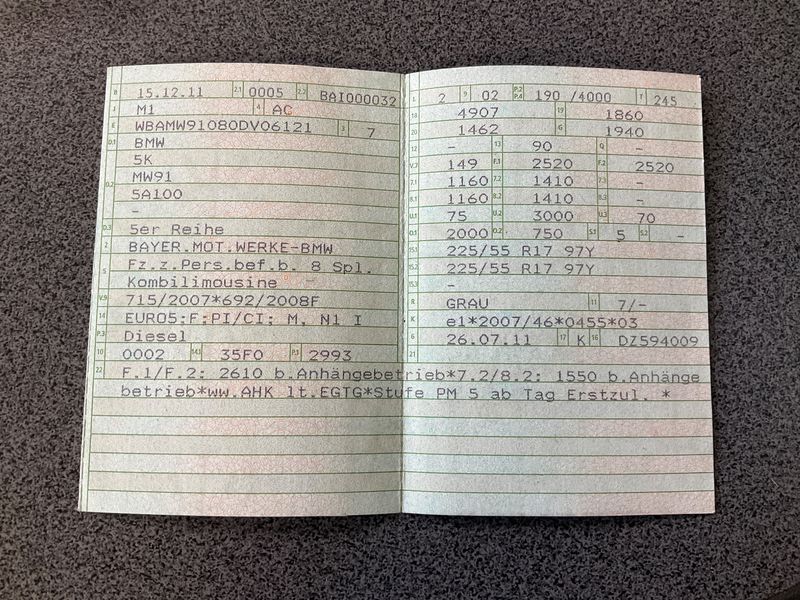 B 15.12.11 2.1 0005 2.2 BAI000032
J M1 4 AC
E WBAMW91080DV06121 3 7
D.1 BMW
5K
D.2 MW91
5A100
-
D.3 5er Reihe
2 BAYER.MOT.WERKE-BMW
5 Fz.z.Pers.bef.b. 8 Spl.
Kombilimousine -
V.9 715/2007*692/2008F
14 EURO5;F;PI/CI; M, N1 I
P.3 Diesel
10 0002 14.1 35F0 P.1 2993
L 2 9 02 P.2 P.4 190 /4000 T 245
18 4907 19 1860
20 1462 G 1940
12 - 13 90 Q -
V.7 149 F.1 2520 F.2 2520
7.1 1160 7.2 1410 7.3 -
8.1 1160 8.2 1410 8.3 -
U.1 75 U.2 3000 U.3 70
O.1 2000 O.2 750 S.1 5 S.2 -
15.1 225/55 R17 97Y
15.2 225/55 R17 97Y
15.3 -
R GRAU 11 7/-
K e1*2007/46*0455*03
6 26.07.11 17 K 16 DZ594009
21
22 F.1/F.2: 2610 b.Anhängebetrieb*7.2/8.2: 1550 b.Anhänge
betrieb*ww.AHK lt.EGTG*Stufe PM 5 ab Tag Erstzul. *